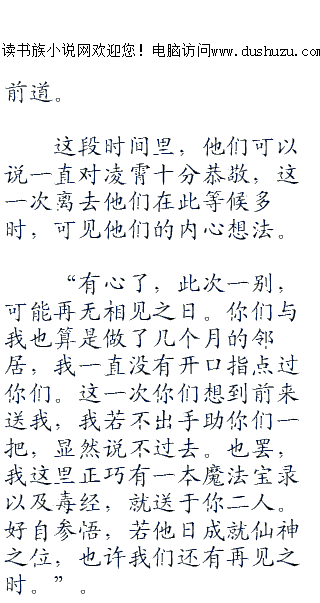 读书族小说网欢迎您！电脑访问www.dushuzu.com
前道。
这段时间里，他们可以
说一直对凌霄十分恭敬，这
一次离去他们在此等候多
时，可见他们的内心想法。
“有心了，此次一别，
可能再无相见之日。你们与
我也算是做了几个月的邻
居，我一直没有开口指点过
你们。这一次你们想到前来
送我，我若不出手助你们一
把，显然说不过去。也罢，
我这里正巧有一本魔法宝录
以及毒经，就送于你二人。
好自参悟，若他日成就仙神
之位，也许我们还有再见之
时。”。